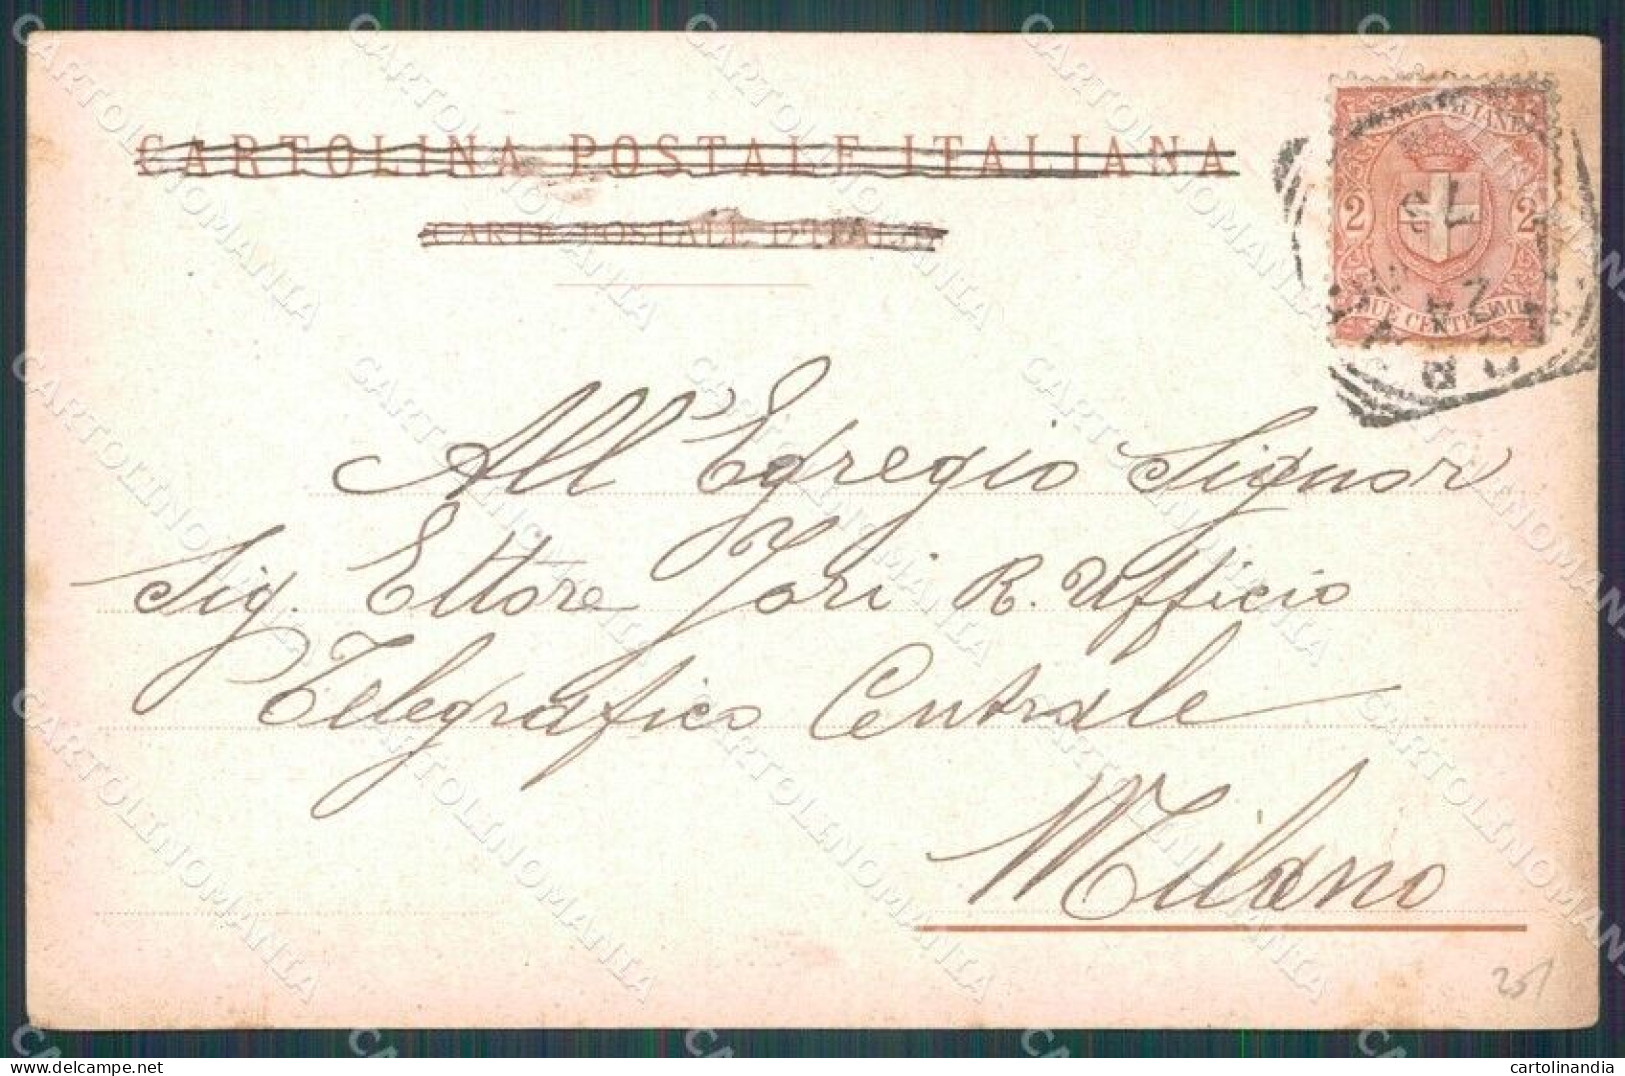 CARTOLINA POSTALE ITALIANA
CARTE POSTALE D'ITALIE
2 2
DUE CENTESIMI
All'Egregio Signor
Sig. Ettore Jori R. Ufficio
Telegrafico Centrale
Milano
251
CARTOLINOMANIA
cartolinandia